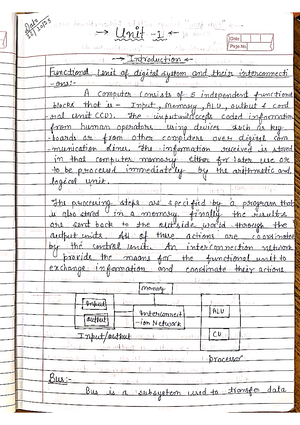 Date
→ Unit -1 ←
Date
Page No.
→ Introduction ←
Functional Unit of digital system and their interconnecti
-ons:-
A computer consists of 5 independent functional
blocks that is - Input, Memory, ALU, output & cont
rol unit (CU). The input accepts coded information
from human operators using devices such as key
boards or from other computers over digital com
-munication lines. The information received is stored
in that computer memory either for later use or
to be processed immediately by the arithmetic and
logical unit.
The processing steps are specified by a program that
is also stored in a memory. finally the results
are sent back to the outside world through the
output units. All of these actions are coordinated
by the control unit. An interconnection network
provide the means for the functional unit to
exchange information and coordinate their actions.
memory
Input
output
Input/output
Interconnect
-ion Network
ALU
CU
processor
Bus:-
Bus is a subsystem used to transfer data